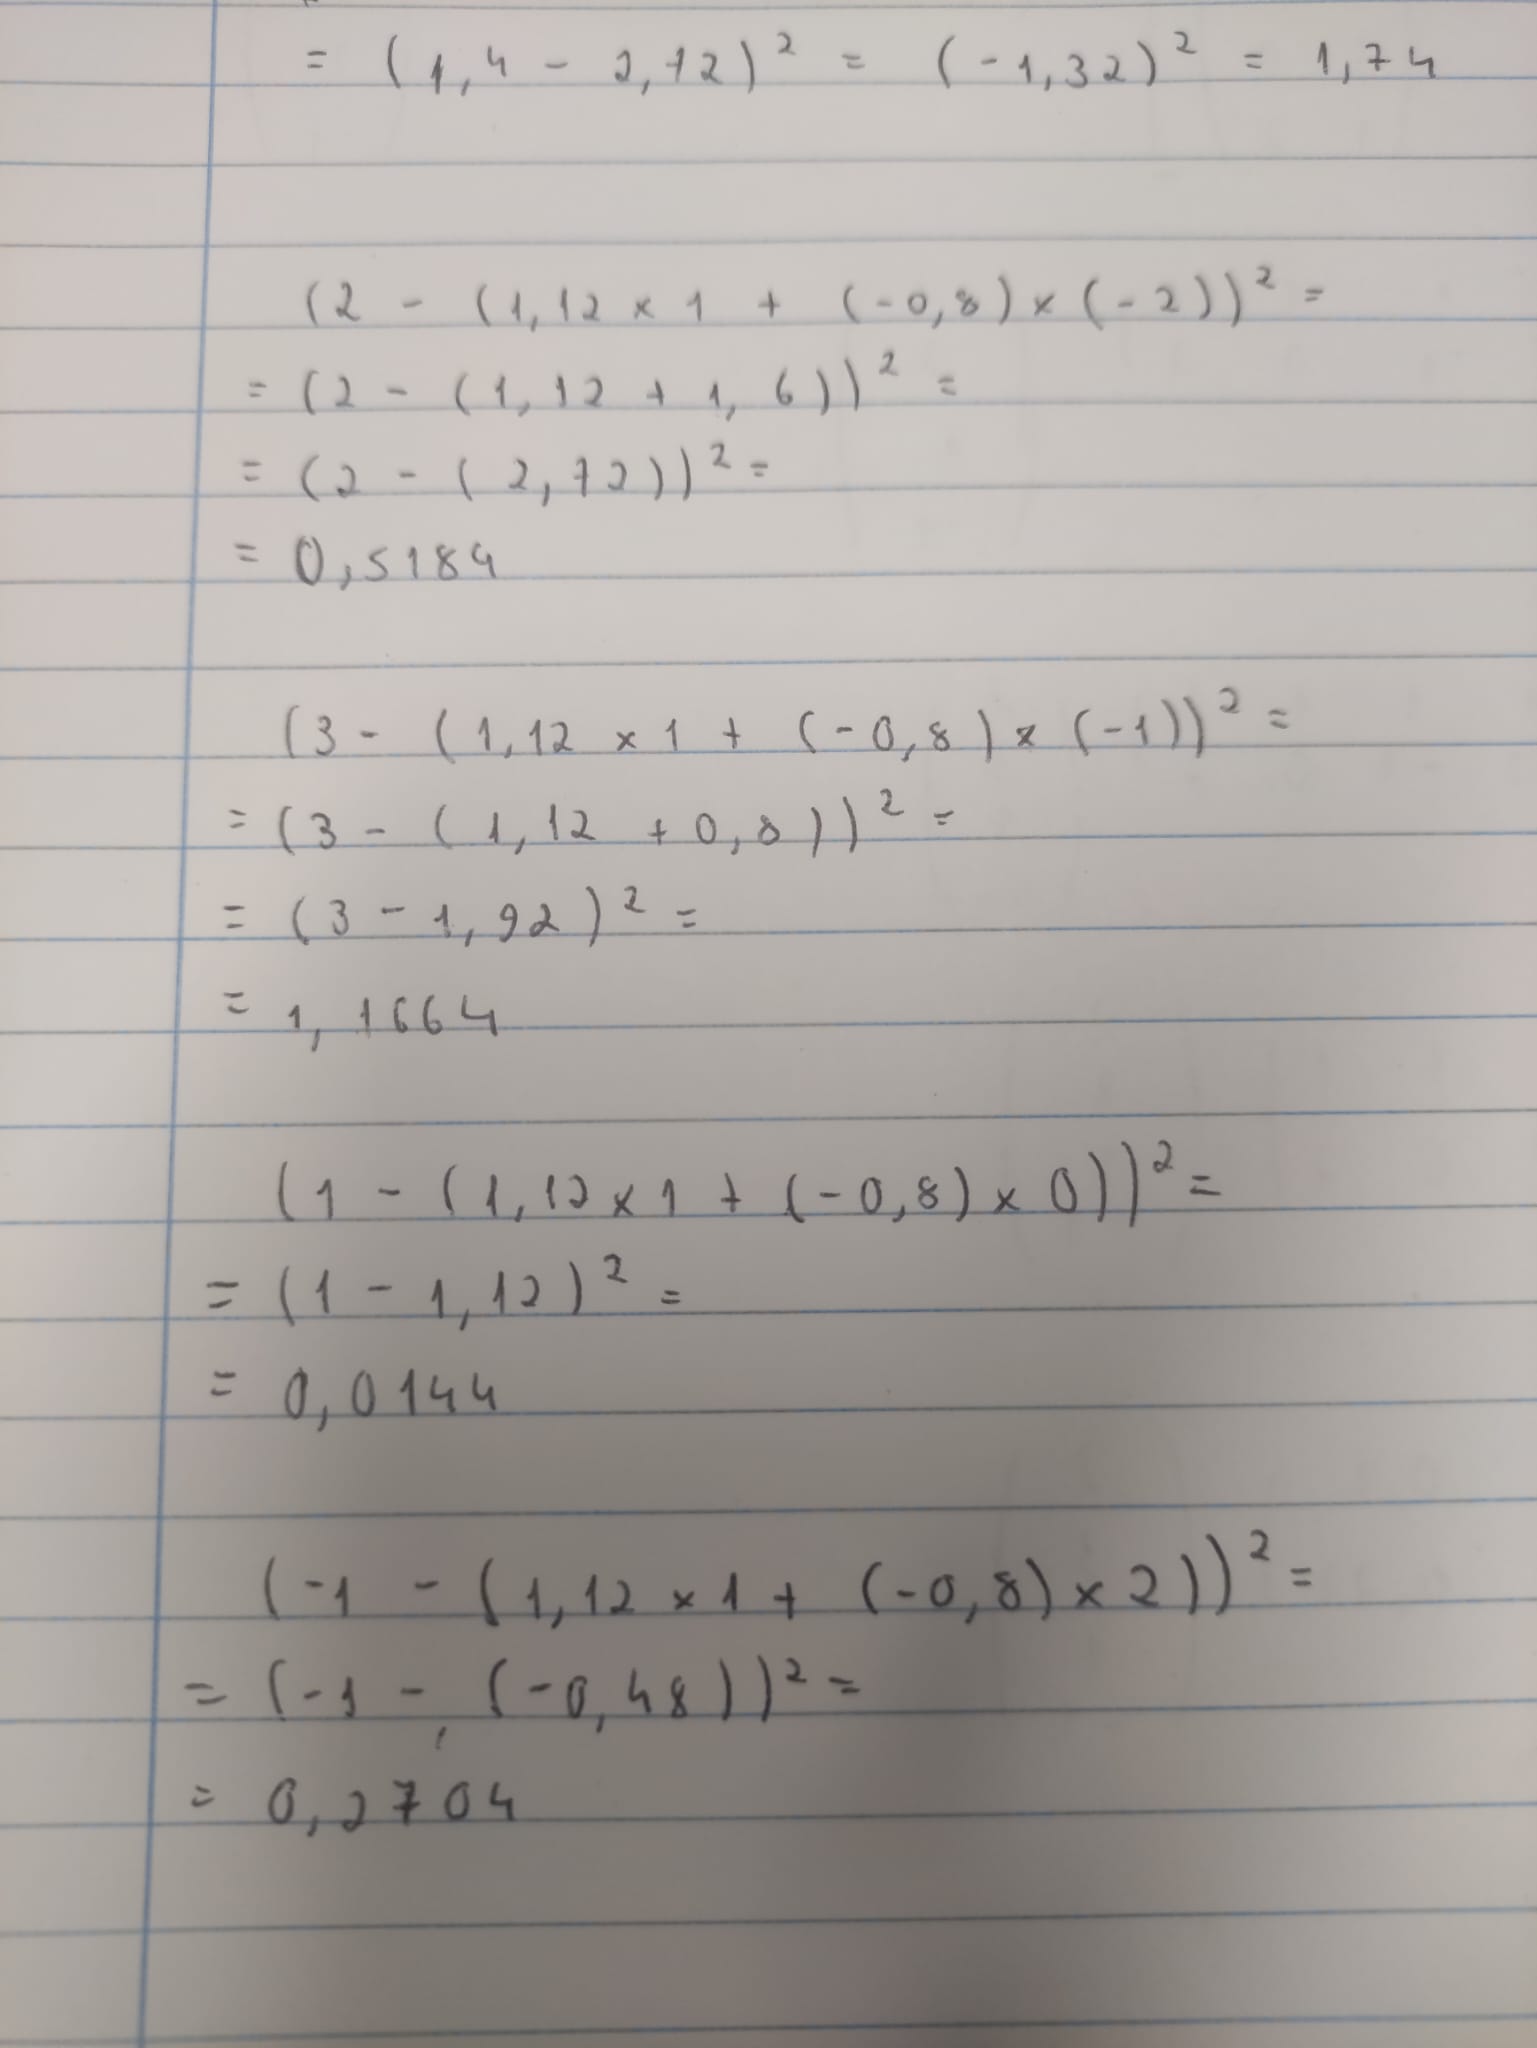 = (1,4 - 2,72)² = (-1,32)² = 1,74
(2 - (1,12 × 1 + (-0,8) × (-2))² =
= (2 - (1,12 + 1,6))² =
= (2 - (2,72))² =
= 0,5184
(3 - (1,12 × 1 + (-0,8) × (-1))² =
= (3 - (1,12 + 0,8))² =
= (3 - 1,92)² =
= 1,1664
(1 - (1,12 × 1 + (-0,8) × 0))² =
= (1 - 1,12)² =
= 0,0144
(-1 - (1,12 × 1 + (-0,8) × 2))² =
= (-1 - (-0,48))² =
= 0,2704